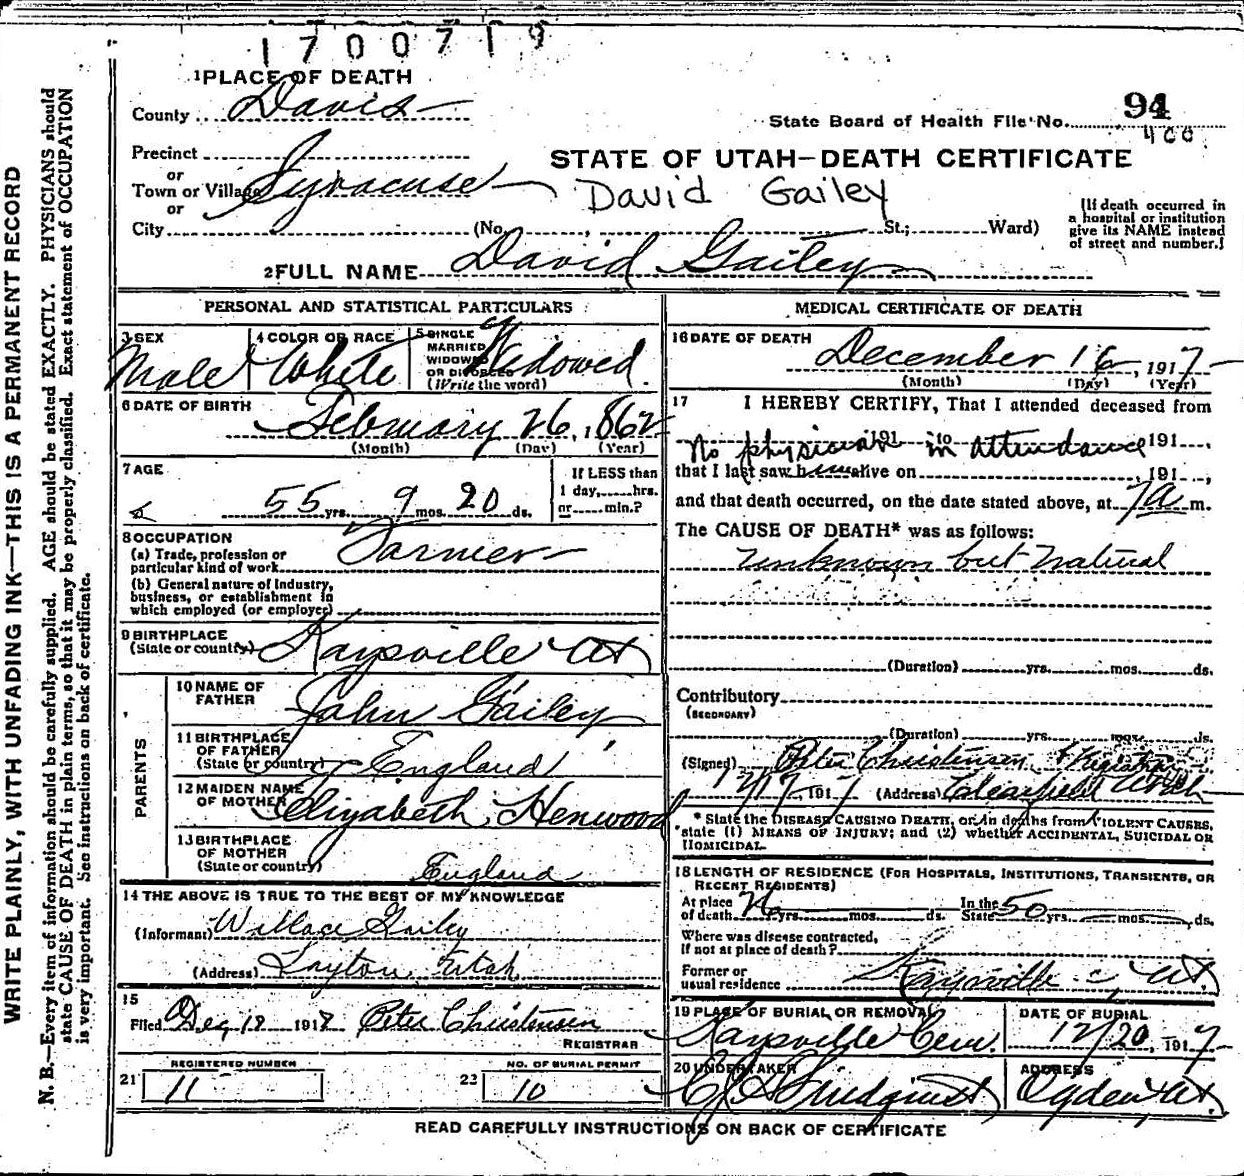 1700719
1 PLACE OF DEATH
County Davis
State Board of Health File No. 94
400
Precinct
STATE OF UTAH—DEATH CERTIFICATE
or
Town or Village Syracuse
David Gailey
or
City (No. , St.; Ward)
(If death occurred in a hospital or institution give its NAME instead of street and number.)
2 FULL NAME David Gailey
PERSONAL AND STATISTICAL PARTICULARS
3 SEX Male
4 COLOR OR RACE White
5 SINGLE MARRIED WIDOWED OR DIVORCED (Write the word) Widowed
6 DATE OF BIRTH February 26, 1862
(Month) (Day) (Year)
7 AGE 55 yrs. 9 mos. 20 ds.
If LESS than 1 day, hrs. or min.?
8 OCCUPATION
(a) Trade, profession or particular kind of work Farmer
(b) General nature of Industry, business, or establishment in which employed (or employer)
9 BIRTHPLACE (State or country) Kaysville Ut
PARENTS
10 NAME OF FATHER John Gailey
11 BIRTHPLACE OF FATHER (State or country) England
12 MAIDEN NAME OF MOTHER Elizabeth Henwood
13 BIRTHPLACE OF MOTHER (State or country) England
14 THE ABOVE IS TRUE TO THE BEST OF MY KNOWLEDGE
(Informant) Wallace Gailey
(Address) Layton, Utah
15
Filed Dec 18 1917 Peter Christensen
REGISTRAR
REGISTERED NUMBER
21 11
NO. OF BURIAL PERMIT
22 10
MEDICAL CERTIFICATE OF DEATH
16 DATE OF DEATH December 16, 1917
(Month) (Day) (Year)
17 I HEREBY CERTIFY, That I attended deceased from
No physician 191 to in attendance 191 ,
that I last saw h alive on 191 ,
and that death occurred, on the date stated above, at 7 a m.
The CAUSE OF DEATH* was as follows:
unknown but natural
(Duration) yrs. mos. ds.
Contributory
(SECONDARY)
(Duration) yrs. mos. ds.
(Signed) Peter Christensen Registrar
12/17, 1917 (Address) Clearfield Utah
* State the DISEASE CAUSING DEATH, or, in deaths from VIOLENT CAUSES, state (1) MEANS OF INJURY; and (2) whether ACCIDENTAL, SUICIDAL OR HOMICIDAL.
18 LENGTH OF RESIDENCE (FOR HOSPITALS, INSTITUTIONS, TRANSIENTS, OR RECENT RESIDENTS)
At place of death 26 yrs. mos. ds. In the State 50 yrs. mos. ds.
Where was disease contracted, if not at place of death?
Former or usual residence Kaysville Ut.
19 PLACE OF BURIAL OR REMOVAL Kaysville Cem.
DATE OF BURIAL 12/20, 1917
20 UNDERTAKER Lindquist
ADDRESS Ogden, Ut.
READ CAREFULLY INSTRUCTIONS ON BACK OF CERTIFICATE
WRITE PLAINLY, WITH UNFADING INK—THIS IS A PERMANENT RECORD
N. B.—Every item of information should be carefully supplied. AGE should be stated EXACTLY. PHYSICIANS should
state CAUSE OF DEATH in plain terms, so that it may be properly classified. Exact statement of OCCUPATION
is very important. See instructions on back of certificate.